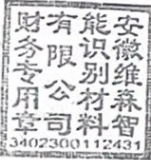 安徽维森智
能识别材料
有限公司
财务专用章
3402300112431